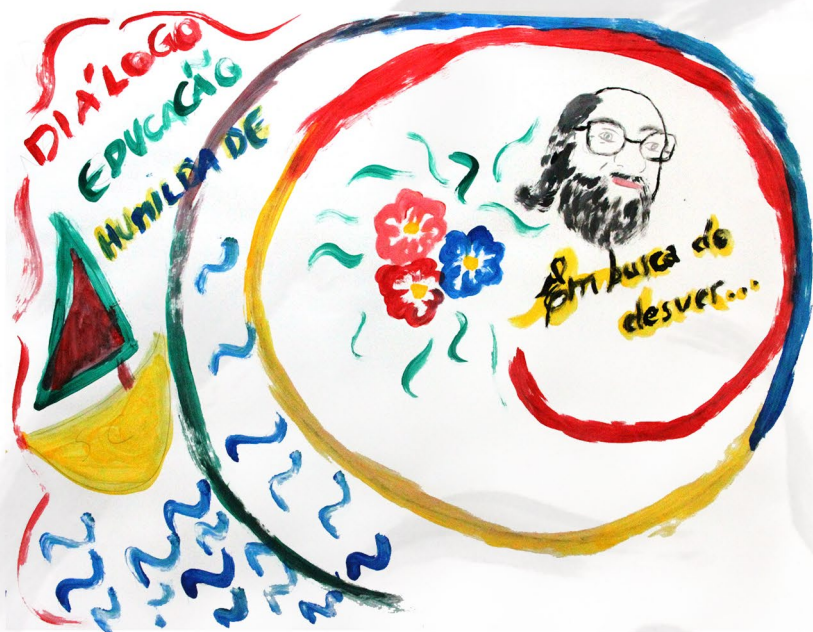 DIÁLOGO
EDUCAÇÃO
HUMILDADE
Em busca do
desver...